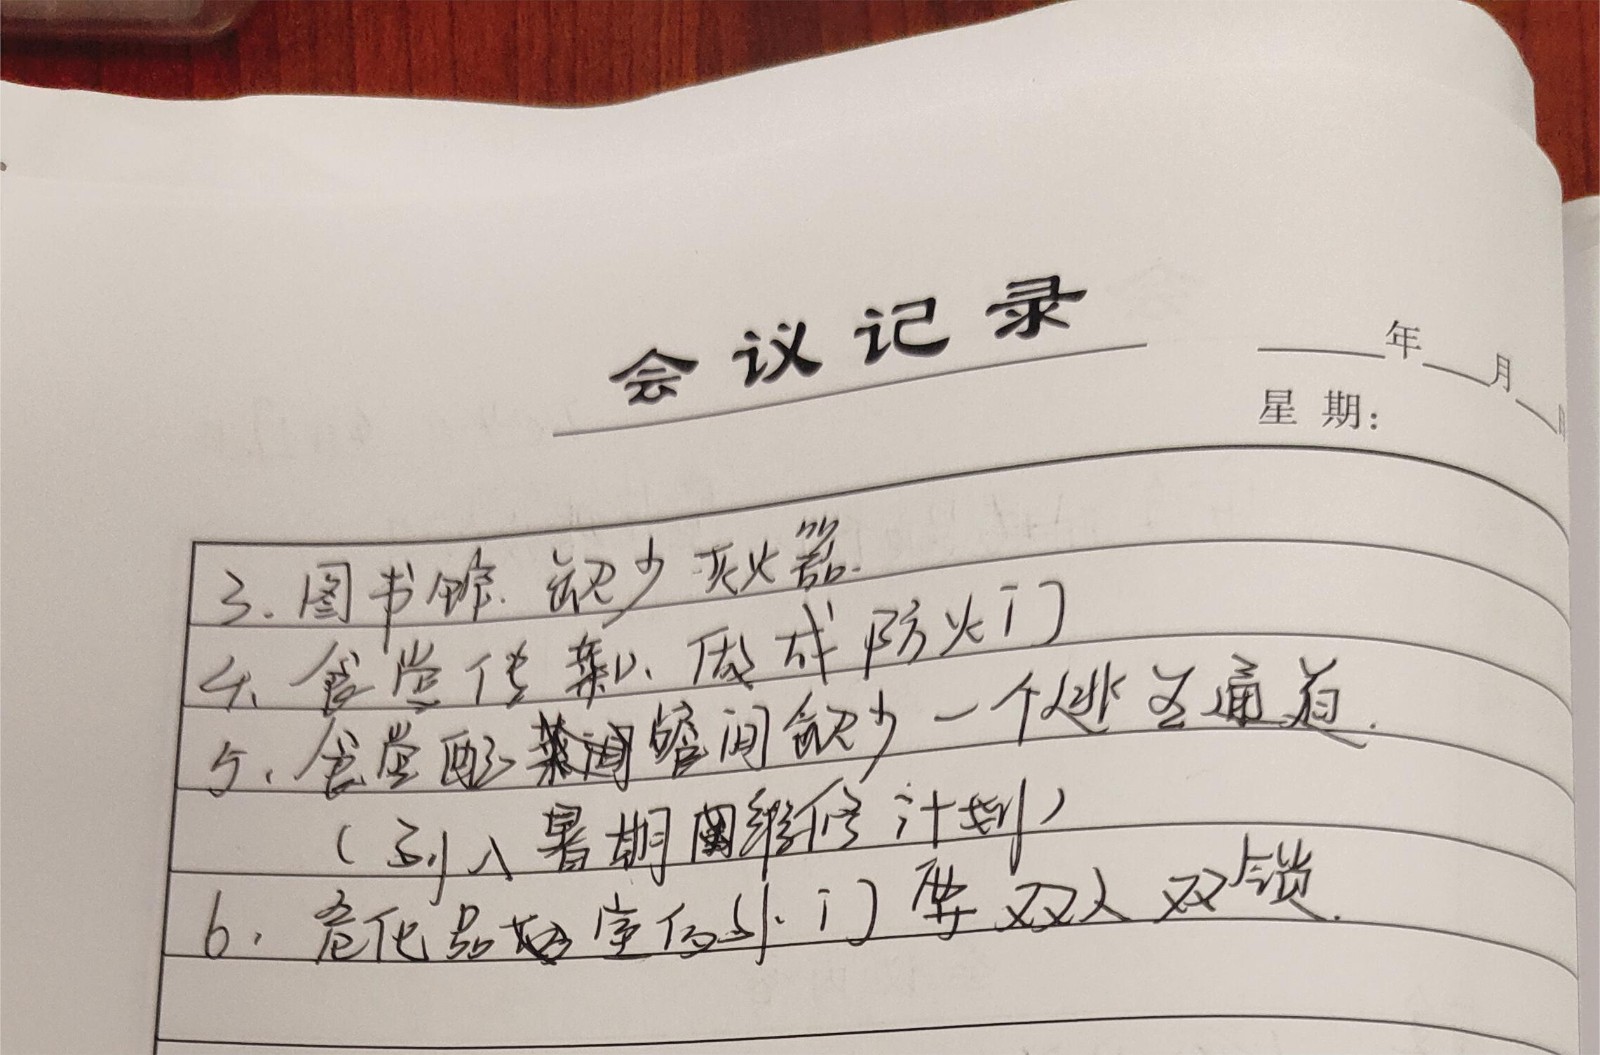 会议记录
年 月
星期:
3.图书馆.缺少灭火器.
4.食堂传菜口、做成防火门
5.食堂配餐间缺少一个逃生通道.
(列入暑期维修计划)
6.危化品室 门要双人双锁.